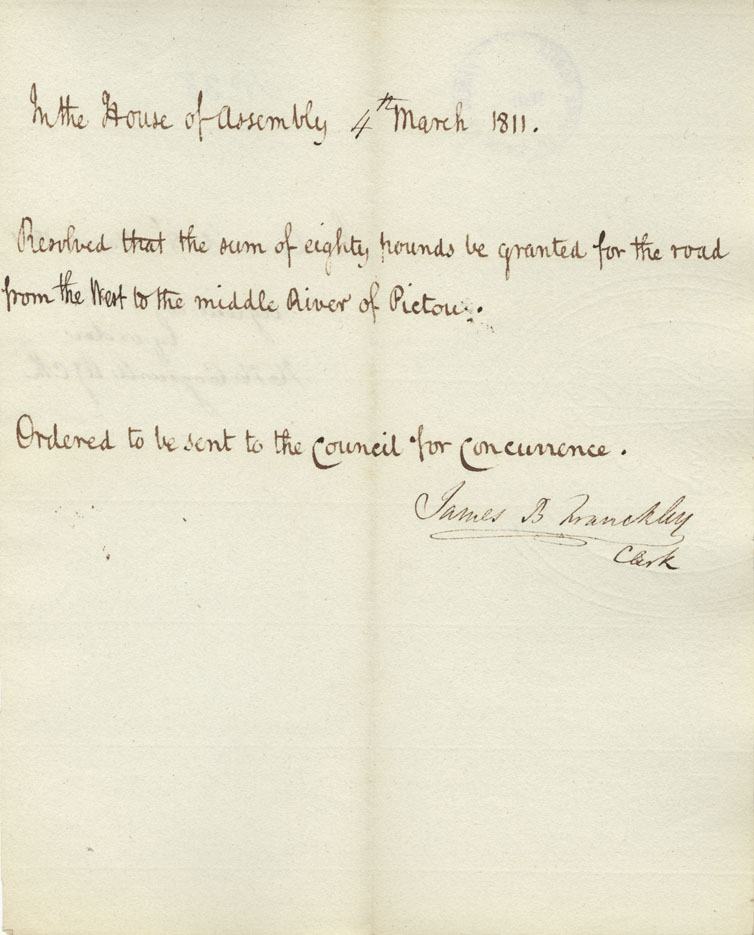 In the House of Assembly 4th March 1811.
Resolved that the sum of eighty pounds be granted for the road
from the West to the middle River of Pictou.
Ordered to be sent to the Council for Concurrence.
James B Franckley
Clerk